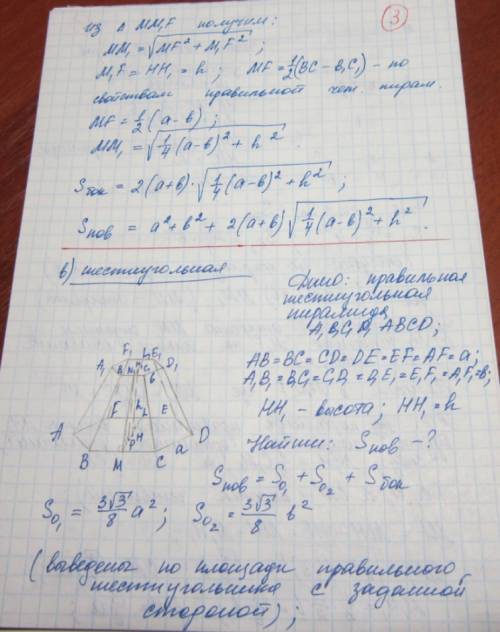 3
из Δ MM₁F получим:
MM₁ = √(MF² + M₁F²);
M₁F = HH₁ = h; MF = ½(BC − B₁C₁) - по
свойствам правильной чет. пирам.
MF = ½(a − b);
MM₁ = √(¼(a−b)² + h²)
Sбок = 2(a+b)·√(¼(a−b)² + h²);
Sпов = a² + b² + 2(a+b)√(¼(a−b)² + h².
в) шестиугольная
Дано: правильная
шестиугольная
пирамида
A₁B₁C₁D₁ ABCD;
AB = BC = CD = DE = EF = AF = a;
A₁B₁ = B₁C₁ = C₁D₁ = D₁E₁ = E₁F₁ = A₁F₁ = b;
HH₁ - высота; HH₁ = h
Найти: Sпов - ?
Sпов = S₀₁ + S₀₂ + Sбок
F₁ E₁ D₁
A₁ B₁ C₁
b
F h E
A P H D
B M C a
S₀₁ = 3√3/8 a²; S₀₂ = 3√3/8 b²
(выведены по площади правильного
шестиугольника с заданной
стороной);